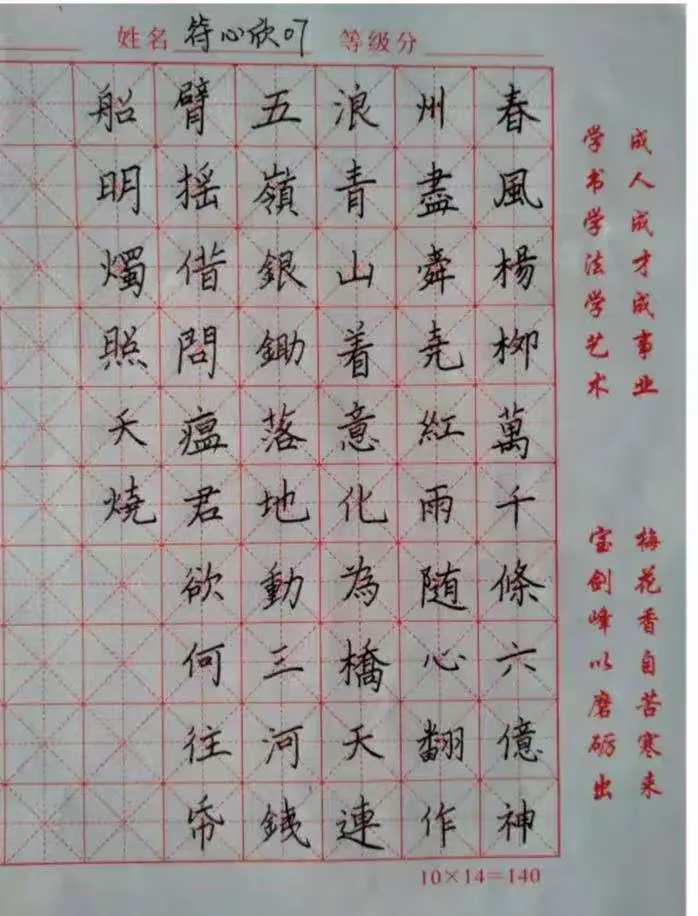 姓名 符心欣07 等级分
春風楊柳萬千條六億神
州盡舜堯紅雨随心翻作
浪青山着意化為橋天連
五嶺銀鋤落地動三河
臂摇借問瘟君欲何往帋
船明燭照天燒
成人成才成事业
学书学法学艺术
梅花香自苦寒来
宝剑峰以磨砺出
10×14=140